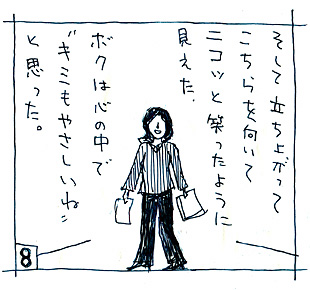 そして立ち上がって
こちらを向いて
ニコッと笑ったように
見えた.
ボクは心の中で
"キミもやさしいね"
と思った。
8